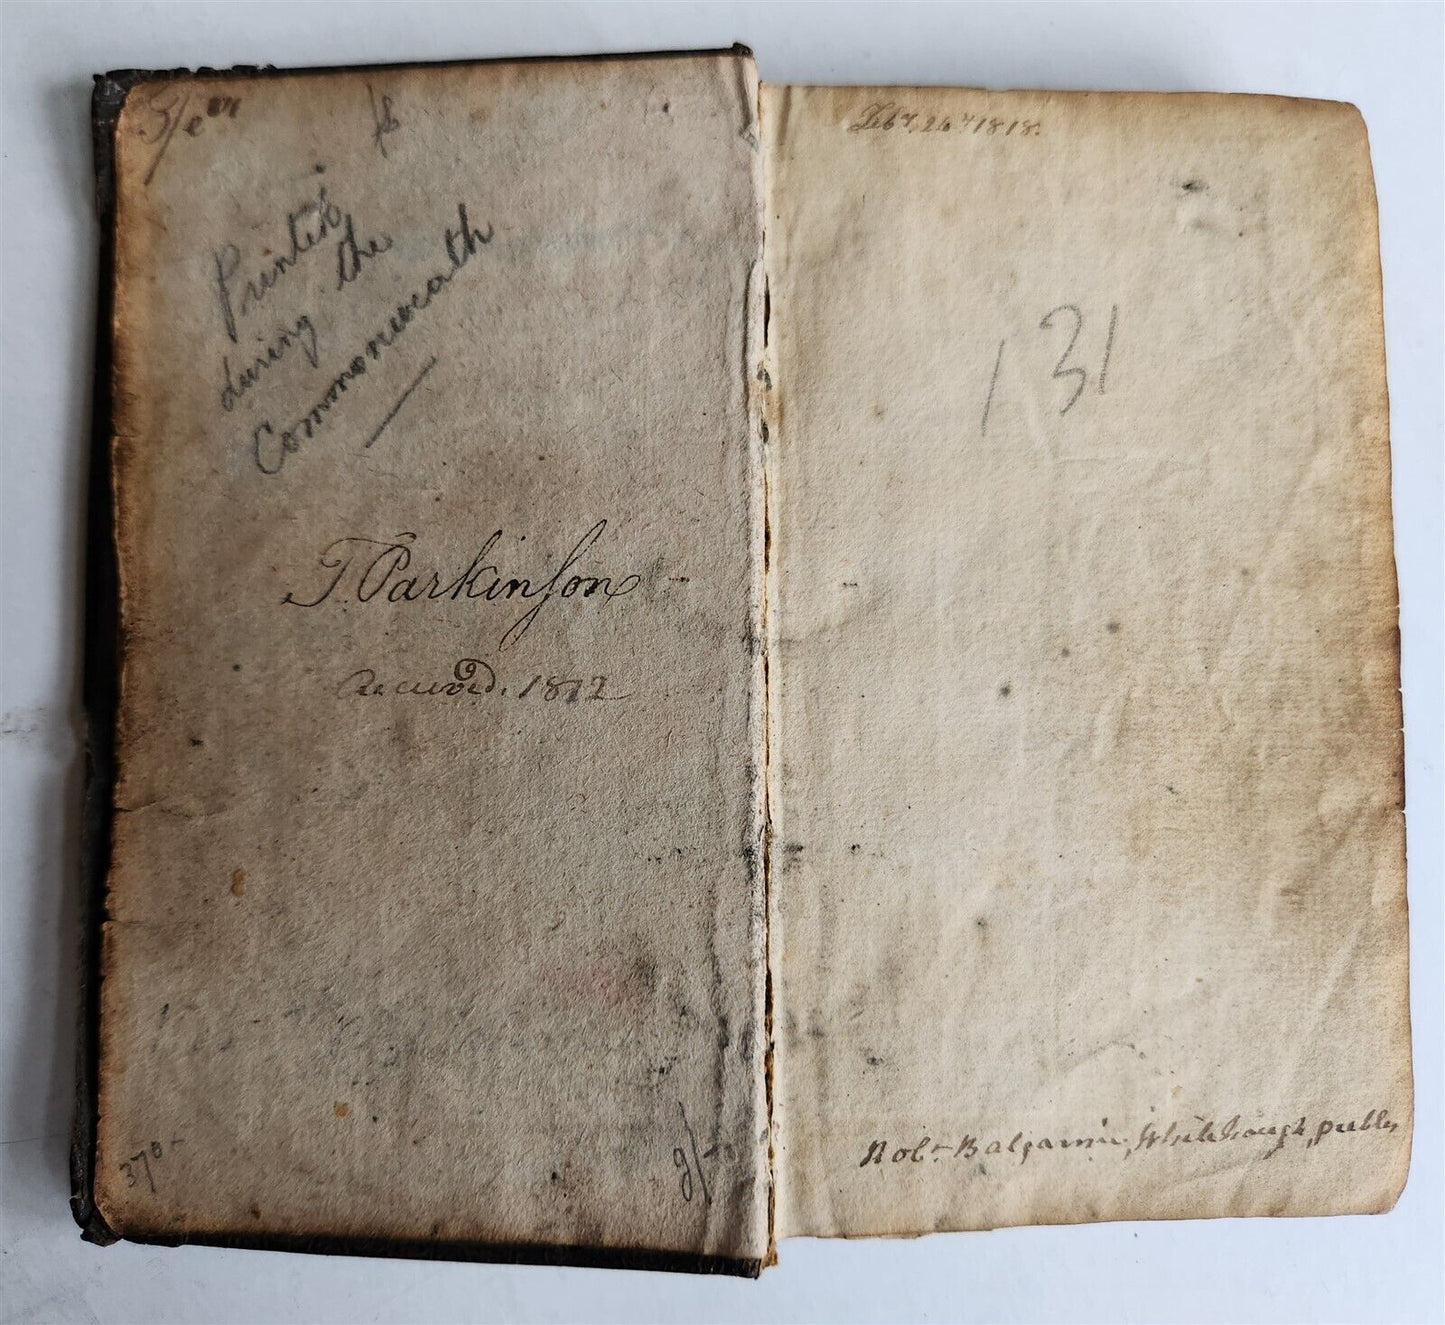 Printed
during the
Commonwealth
T. Parkinson
Received. 1812
370-
Feby. 26 1818.
131
Robt. Balgarnie, Whitehaugh, peebles